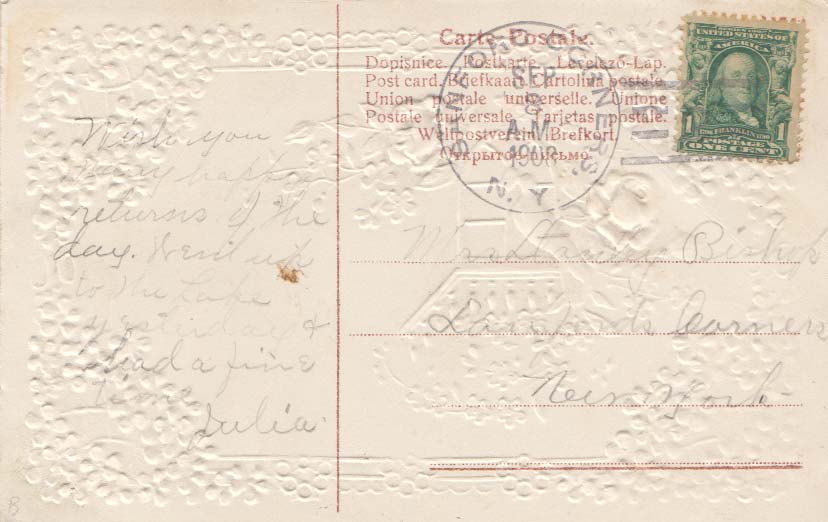 Carte Postale.
Dopisnice. Postkarte. Levelező-Lap.
Post card. Briefkaart. Cartolina postale.
Union postale universelle. Unione
Postale universale. Tarjetas postales.
Weltpostverein. Brefkort.
Открытое письмо.
CORNERS.
SEP
A.M.
1908
N.Y.
UNITED STATES OF
AMERICA
1 FRANKLIN 1
POSTAGE
ONE CENT
Wish you
many happy
returns of the
day. Went up
to the Lake
yesterday &
had a fine
time
Julia.
Mrs Stanley Bishop
Corners
New York
B